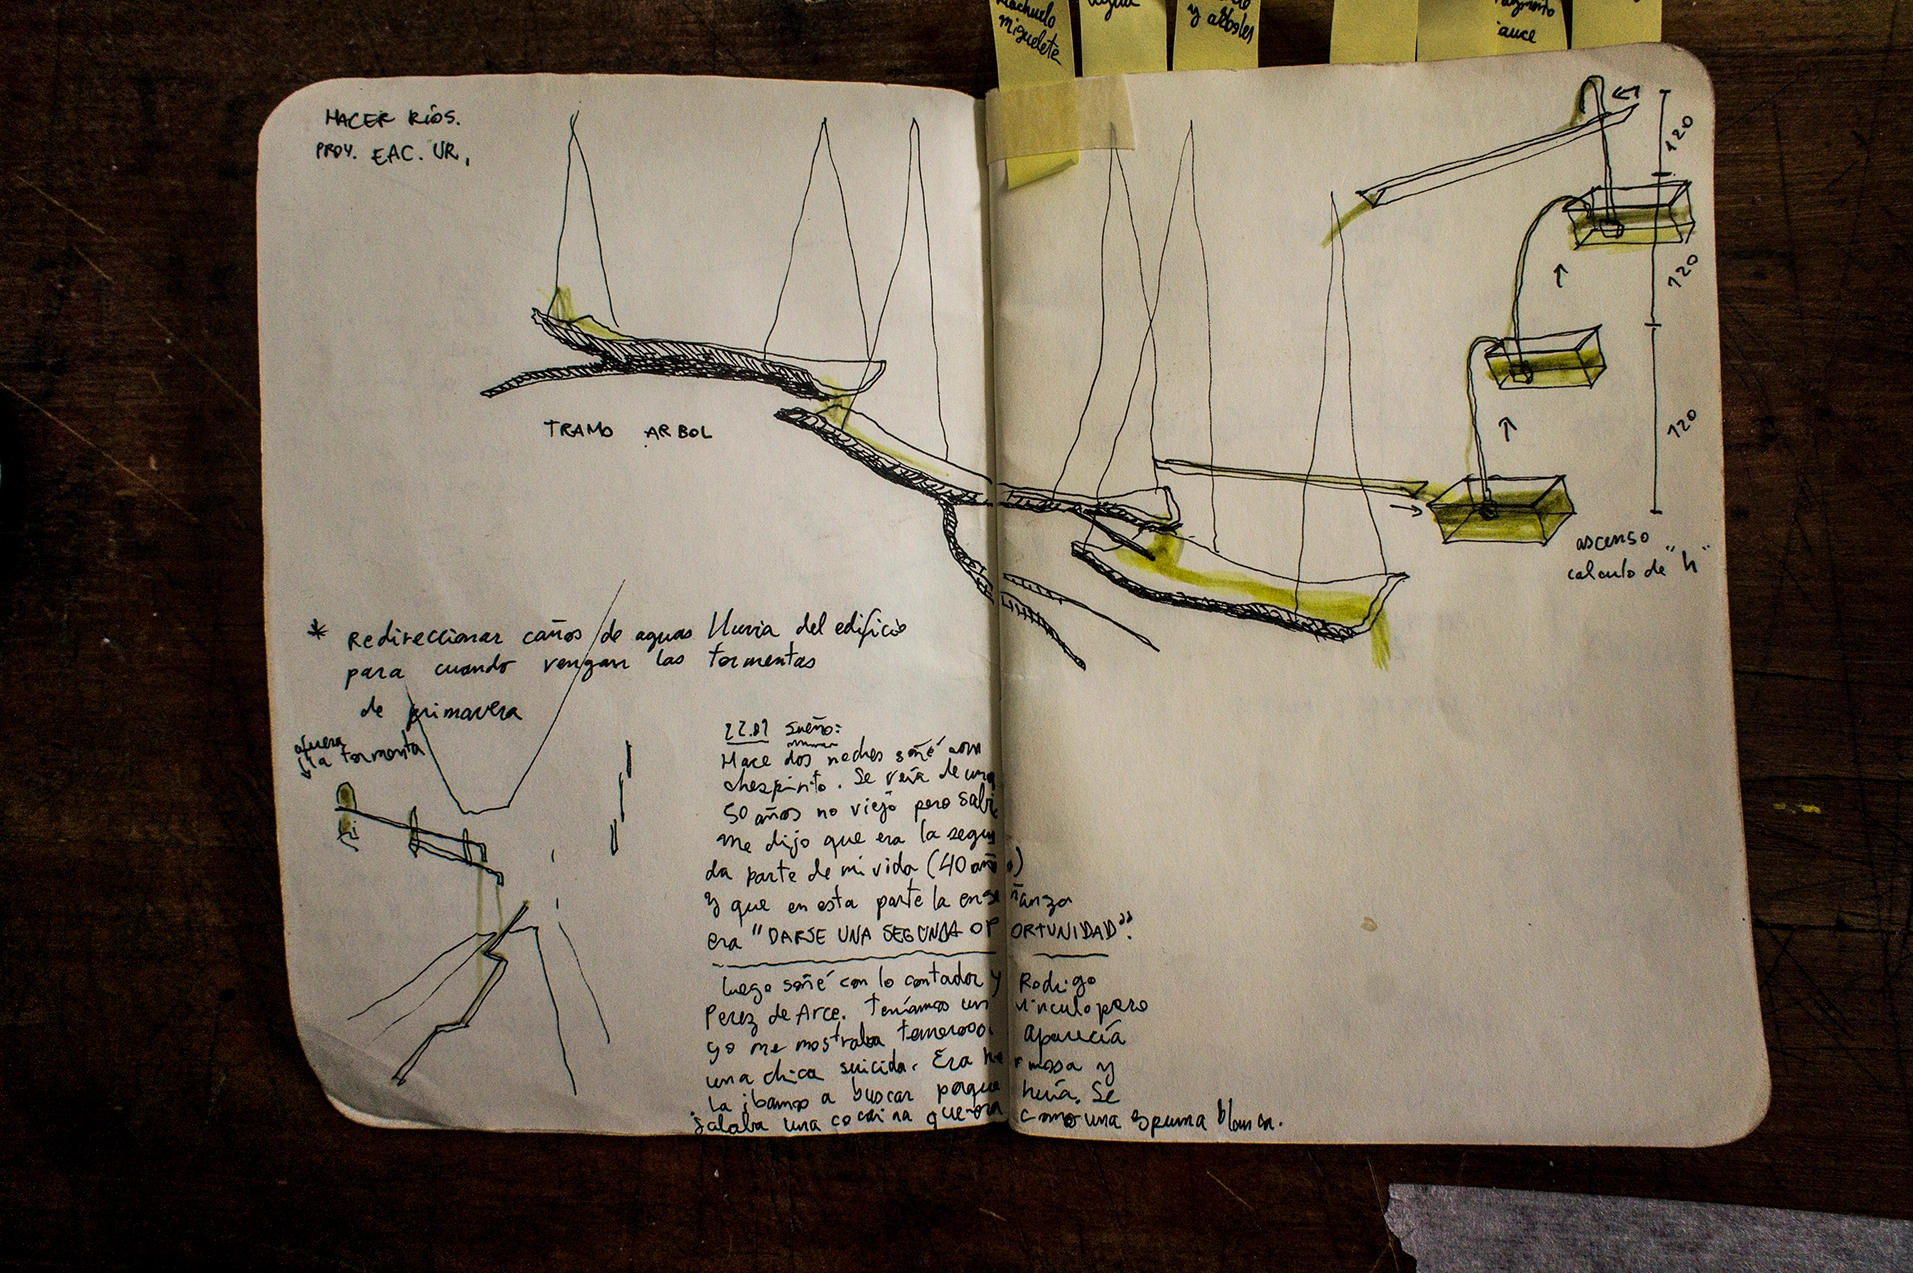 riachuelo
miguelete
agua
y arboles
fragmento
sauce
HACER RÍOS.
PROY. EAC. UR,
TRAMO ARBOL
* Redireccionar caños de aguas lluvia del edificio
para cuando vengan las tormentas
de primavera
afuera
la tormenta
120
120
120
ascenso
calculo de "h"
sueño:
Hace dos noches soñé con
chespirito. Se veía de unos
50 años no viejo pero sabi
me dijo que era la segun
da parte de mi vida (40 años)
y que en esta parte la enseñanza
era "DARSE UNA SEGUNDA OPORTUNIDAD".
Luego soñé con lo contador y Rodrigo
Perez de Arce. Teníamos un vinculo pero
yo me mostraba temeroso. aparecía
una chica suicida. Era hermosa y
la ibamos a buscar porque huía. Se
jalaba una cocaina que era como una espuma blanca.